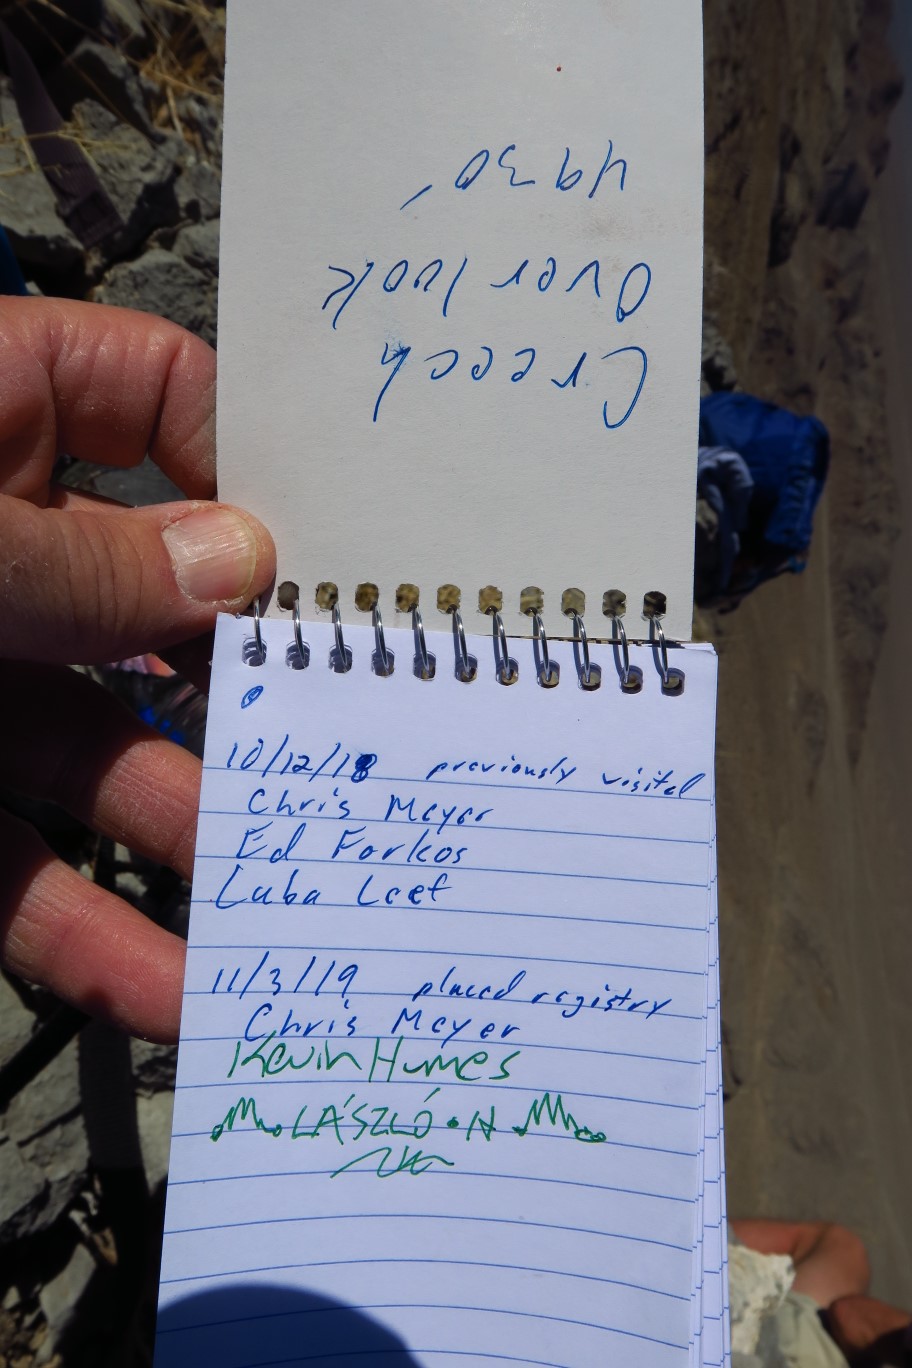 Creech
Overlook
4930'
10/12/18 previously visited
Chris Meyer
Ed Forkos
Luba Leef
11/3/19 placed registry
Chris Meyer
Kevin Humes
LÁSZLÓ • N